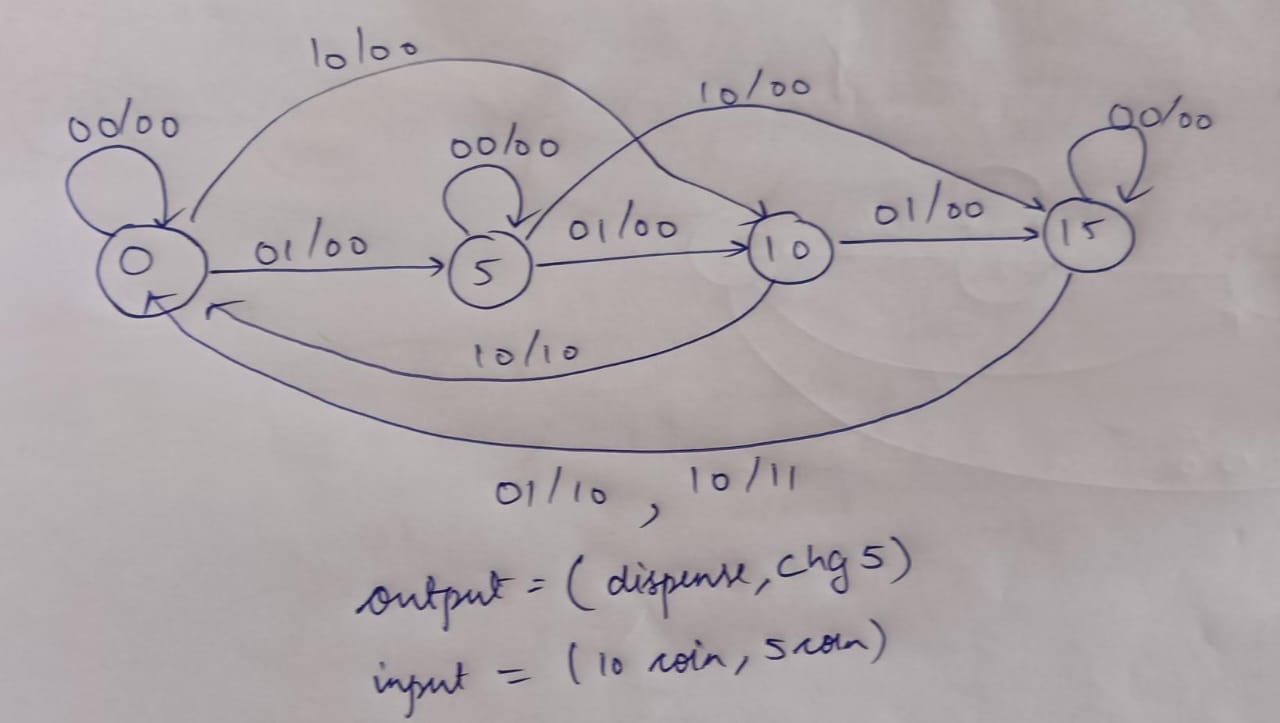 10/00
10/00
00/00
00/00
00/00
01/00
01/00
01/00
0
5
10
15
10/10
01/10 , 10/11
output = ( dispense, chg 5)
input = (10 coin, 5 coin)